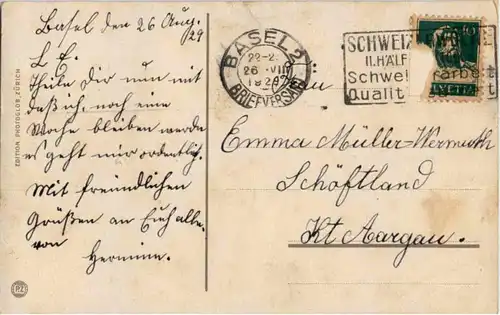 Basel den 26 Aug.
29
L. E.
Theile Dir nun mit
daß ich noch eine
Woche bleiben werde
es geht mir ordentlich.
Mit freundlichen
Grüßen an Euch alle
von
Hermine.
EDITION PHOTOGLOB, ZÜRICH
PZ
BASEL 2
26. VIII
BRIEFVERSAND
SCHWEIZ
II. HÄLF
Schwei rarbeit
Qualit
10
HELVETIA
Emma Müller-Wermuth
Schöftland
Kt Aargau.